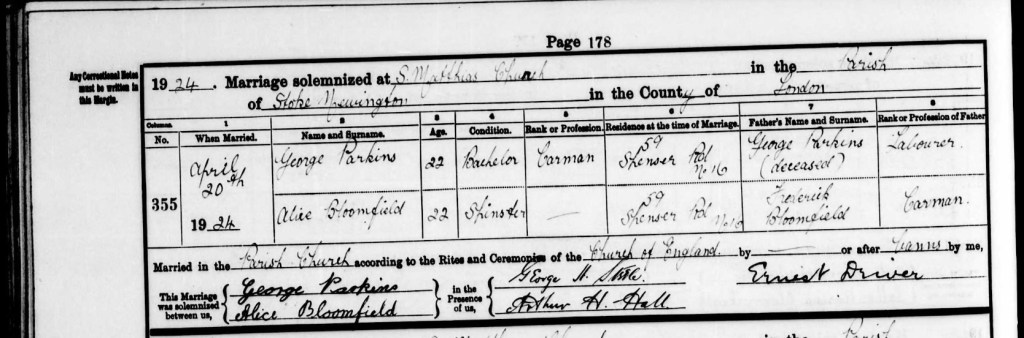 Page 178
Any Correctional Notes
must be written in
this Margin.
1924. Marriage solemnized at S. Matthias Church in the Parish
of Stoke Newington in the County of London
Columns. 1 2 3 4 5 6 7 8
No. When Married. Name and Surname. Age. Condition. Rank or Profession. Residence at the time of Marriage. Father's Name and Surname. Rank or Profession of Father
355
April
20th
1924
George Parkins 22 Bachelor Carman 59 Spenser Rd No 16 George Parkins (deceased) Labourer.
Alice Bloomfield 22 Spinster — 59 Spenser Rd No 16 Frederick Bloomfield Carman.
Married in the Parish Church according to the Rites and Ceremonies of the Church of England. by — or after banns by me,
This Marriage
was solemnized
between us,
George Parkins
Alice Bloomfield
in the
Presence
of us,
George H.
Arthur H. Hall
Ernest Driver
in the Parish